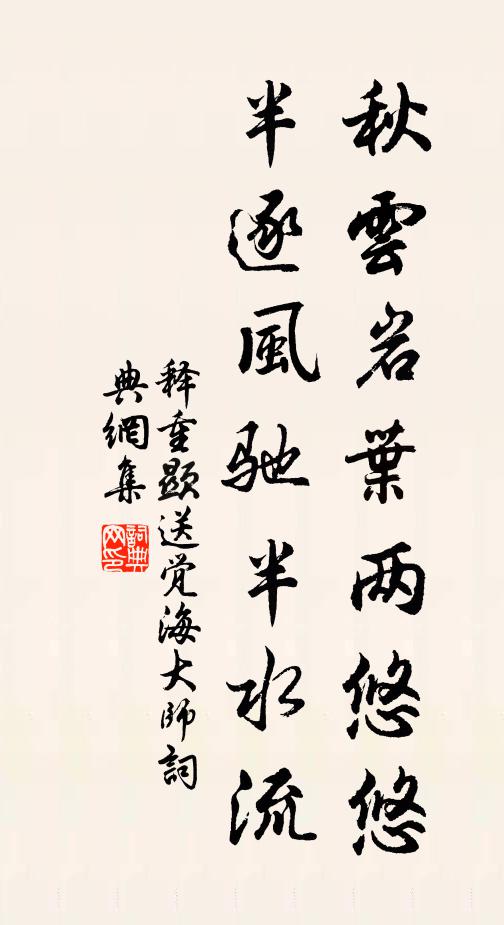 秋雲岩葉两悠悠
半逐風馳半水流
释重顯送觉海大師詞
典網集
詞典网印